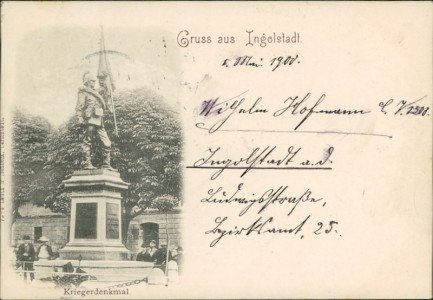 Gruss aus Ingolstadt.
1. Mai 1900.
Wilhelm Hofmann C. V. 1200.
Ingolstadt a. d.
Ludwigstraße,
Bezirksamt, 25.
Kriegerdenkmal